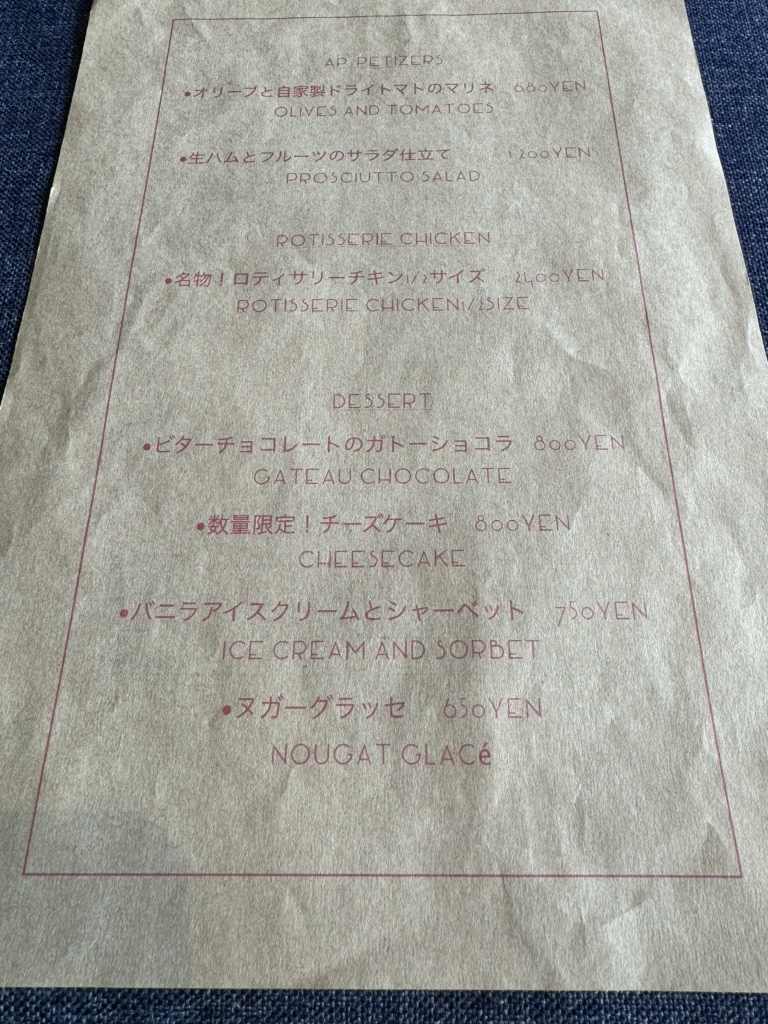 APPETIZERS
●オリーブと自家製ドライトマトのマリネ 680YEN
OLIVES AND TOMATOES
●生ハムとフルーツのサラダ仕立て 1200YEN
PROSCIUTTO SALAD
ROTISSERIE CHICKEN
●名物！ロティサリーチキン1/2サイズ 2400YEN
ROTISSERIE CHICKEN1/2SIZE
DESSERT
●ビターチョコレートのガトーショコラ 800YEN
GATEAU CHOCOLATE
●数量限定！チーズケーキ 800YEN
CHEESECAKE
●バニラアイスクリームとシャーベット 750YEN
ICE CREAM AND SORBET
●ヌガーグラッセ 650YEN
NOUGAT GLACé